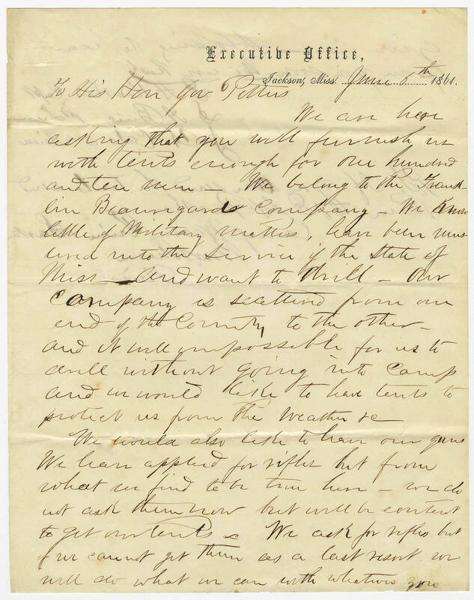 Executive Office,
Jackson, Miss. June 6th 1861.
To His Hon Gov Pettus
We are here
asking that you will furnish us
with tents enough for one hundred
and ten men — We belong to the Frank
lin Beauregards Company — We Know
little of Military matters, have been mus
tered into the Service of the State of
Miss — and want to drill — Our
Company is scattered from one
end of the County to the other —
and it will impossible for us to
drill without going into Camp
and we would like to have tents to
protect us from the weather &c
We would also like to have our guns
We have applied for rifles but from
what we find to be true here — we do
not ask them now but will be content
to get our tents &c We ask for rifles but
if we cannot get them as a last resort we
will do what we can with whatever you